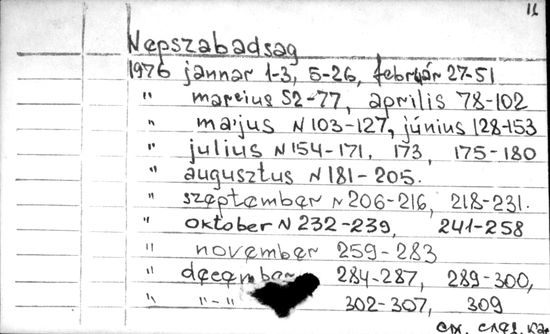 11
Nepszabadsag
1976 jannar 1-3, 5-26, február 27-51
" marcius 52-77, aprilis 78-102
" május N 103-127, június 128-153
" julius N 154-171, 173, 175-180
" augusztus N 181-205.
" szeptember N 206-216, 218-231.
" oktober N 232-239, 241-258
" november 259-283
" 284-287, 289-300,
" "-" 302-307, 309
см. след.